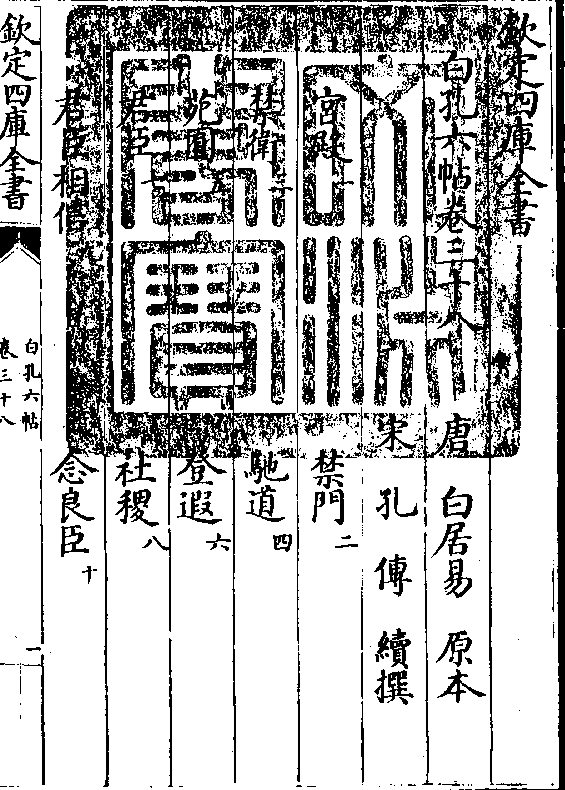 欽定四庫全書
白孔六帖卷三十八
唐 白居易 原本
宋 孔傳 續撰
宮殿一 禁門二
禁衛三 馳道四
苑囿五 登遐六
君臣七 社稷八
君臣相信九 念良臣十
欽定四庫全書
白孔六帖
卷三十八
一